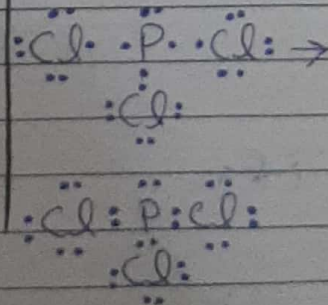 :Cl· ·P· ·Cl: →
:Cl:
:Cl:P:Cl:
:Cl: